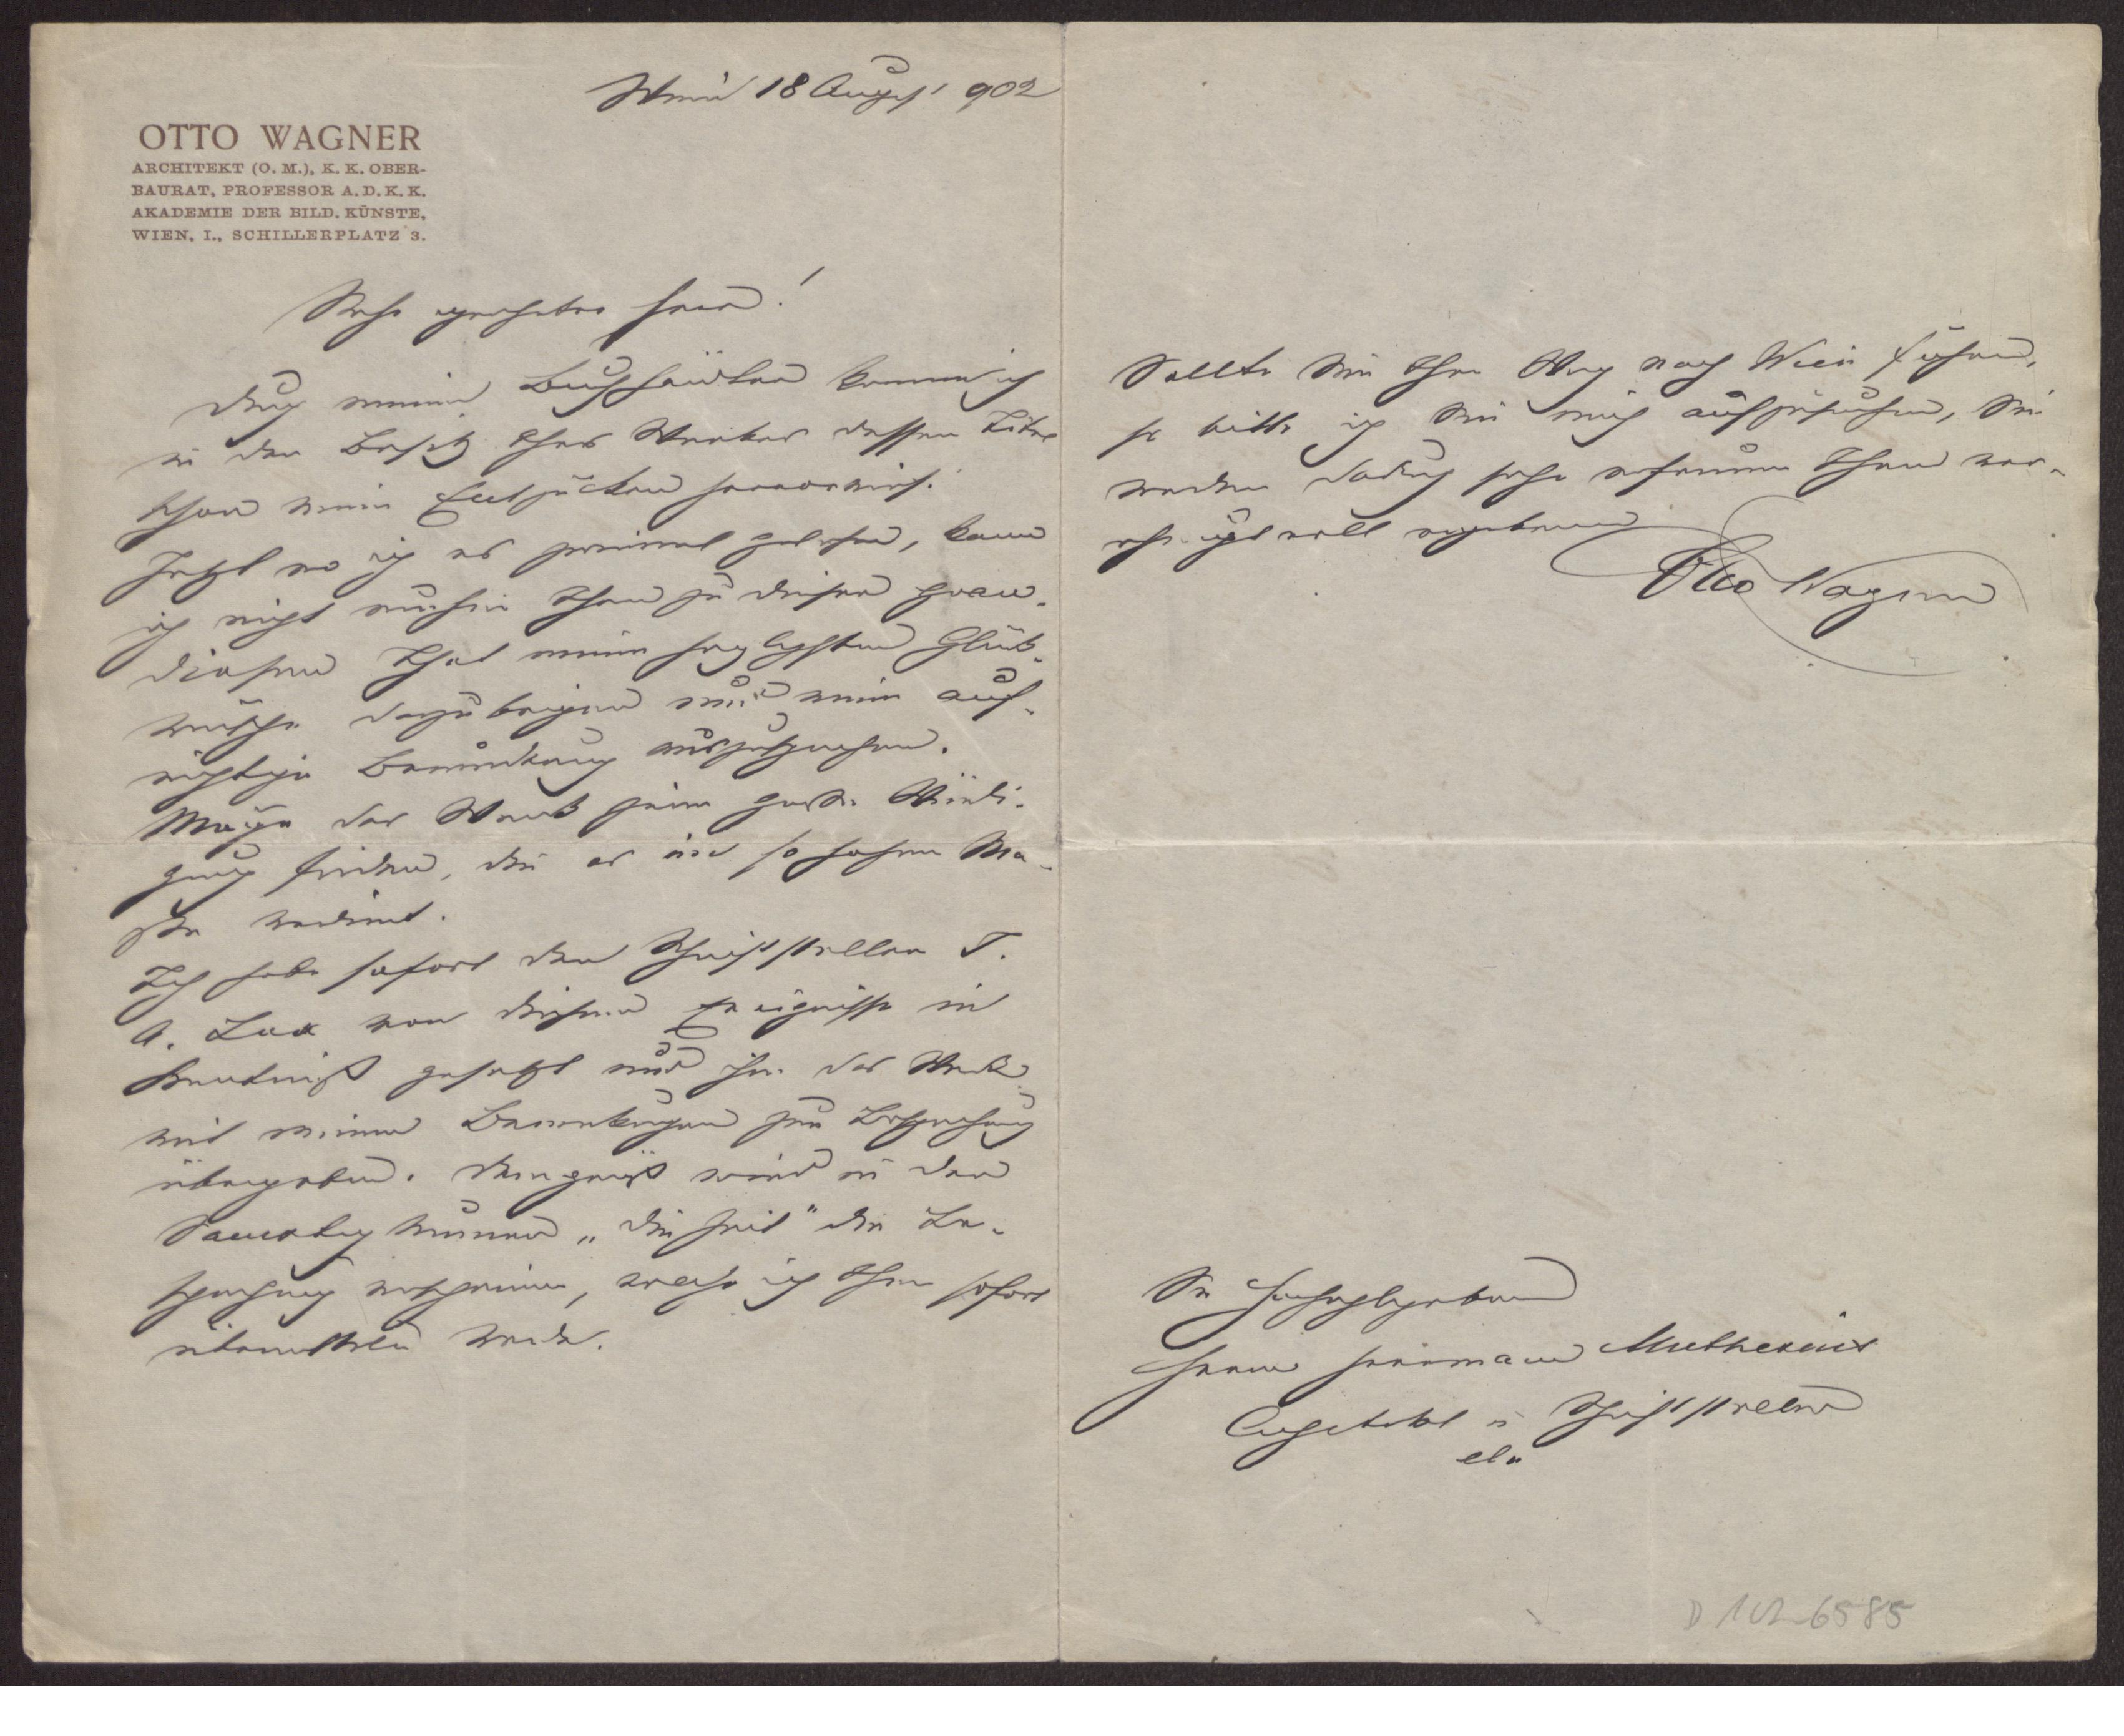 Wien 18 August 902
OTTO WAGNER
ARCHITEKT (O. M.), K. K. OBER-
BAURAT, PROFESSOR A. D. K. K.
AKADEMIE DER BILD. KÜNSTE,
WIEN, I., SCHILLERPLATZ 3.
Sehr geehrter Herr!
Durch meinen Buchhändler komme ich
in den Besitz Ihres Werkes dessen Titel
schon mein Entzücken hervorrief.
Jetzt wo ich es zweimal gelesen, kann
ich nicht umhin Ihnen zu dieser gran-
diosen That meine herzlichsten Glück-
wünsche darzubringen und meine auf-
richtige Bewunderung auszusprechen.
Möge das Werk jene große Würdi-
gung finden, die es in so hohem Ma-
ße verdient.
Ich habe sofort den Schriftsteller J.
A. Lux von diesem Ereignisse in
Kenntniß gesetzt und ihm das Werk
mit meinen Bemerkungen zur Besprechung
übergeben. Demgemäß wird in der
Samstag Nummer „Die Zeit" die Be-
sprechung erscheinen, welche ich Ihnen sofort
übermitteln werde.
Sollte Sie Ihr Weg nach Wien führen,
so bitte ich Sie mich aufzusuchen, Sie
werden dadurch sehr erfreuen Ihren ver-
ehrungsvoll ergebenen
Otto Wagner
Sr Hochwohlgeboren
Herrn Hermann Muthesius
Architekt u Schriftsteller
etc
D 102-6585